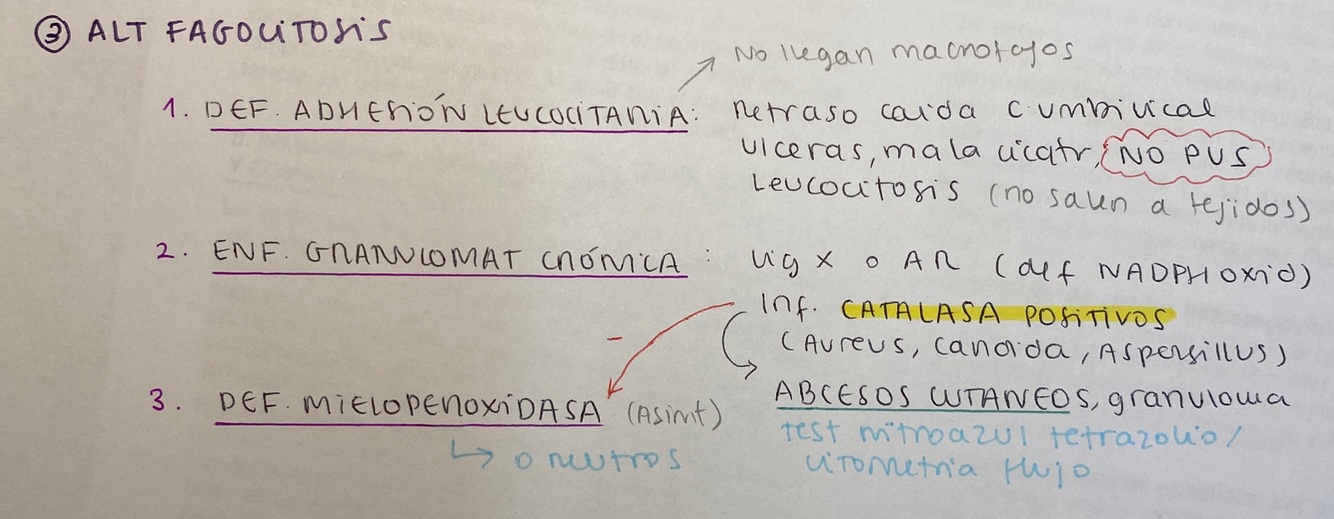 ③ ALT FAGOCITOSIS
No llegan macrofagos
1. DEF. ADHESIÓN LEUCOCITARIA: Retraso caida c umbilical
ulceras, mala cicatr, NO PUS
Leucocitosis (no salen a tejidos)
2. ENF. GRANULOMAT CRÓNICA: lig X o AR (def NADPH oxid)
Inf. CATALASA POSITIVOS
(Aureus, candida, Aspergillus)
3. DEF. MIELOPEROXIDASA (Asint)
ABCESOS CUTANEOS, granuloma
↳ 0 neutros
Test nitroazul tetrazolio/
citometria flujo